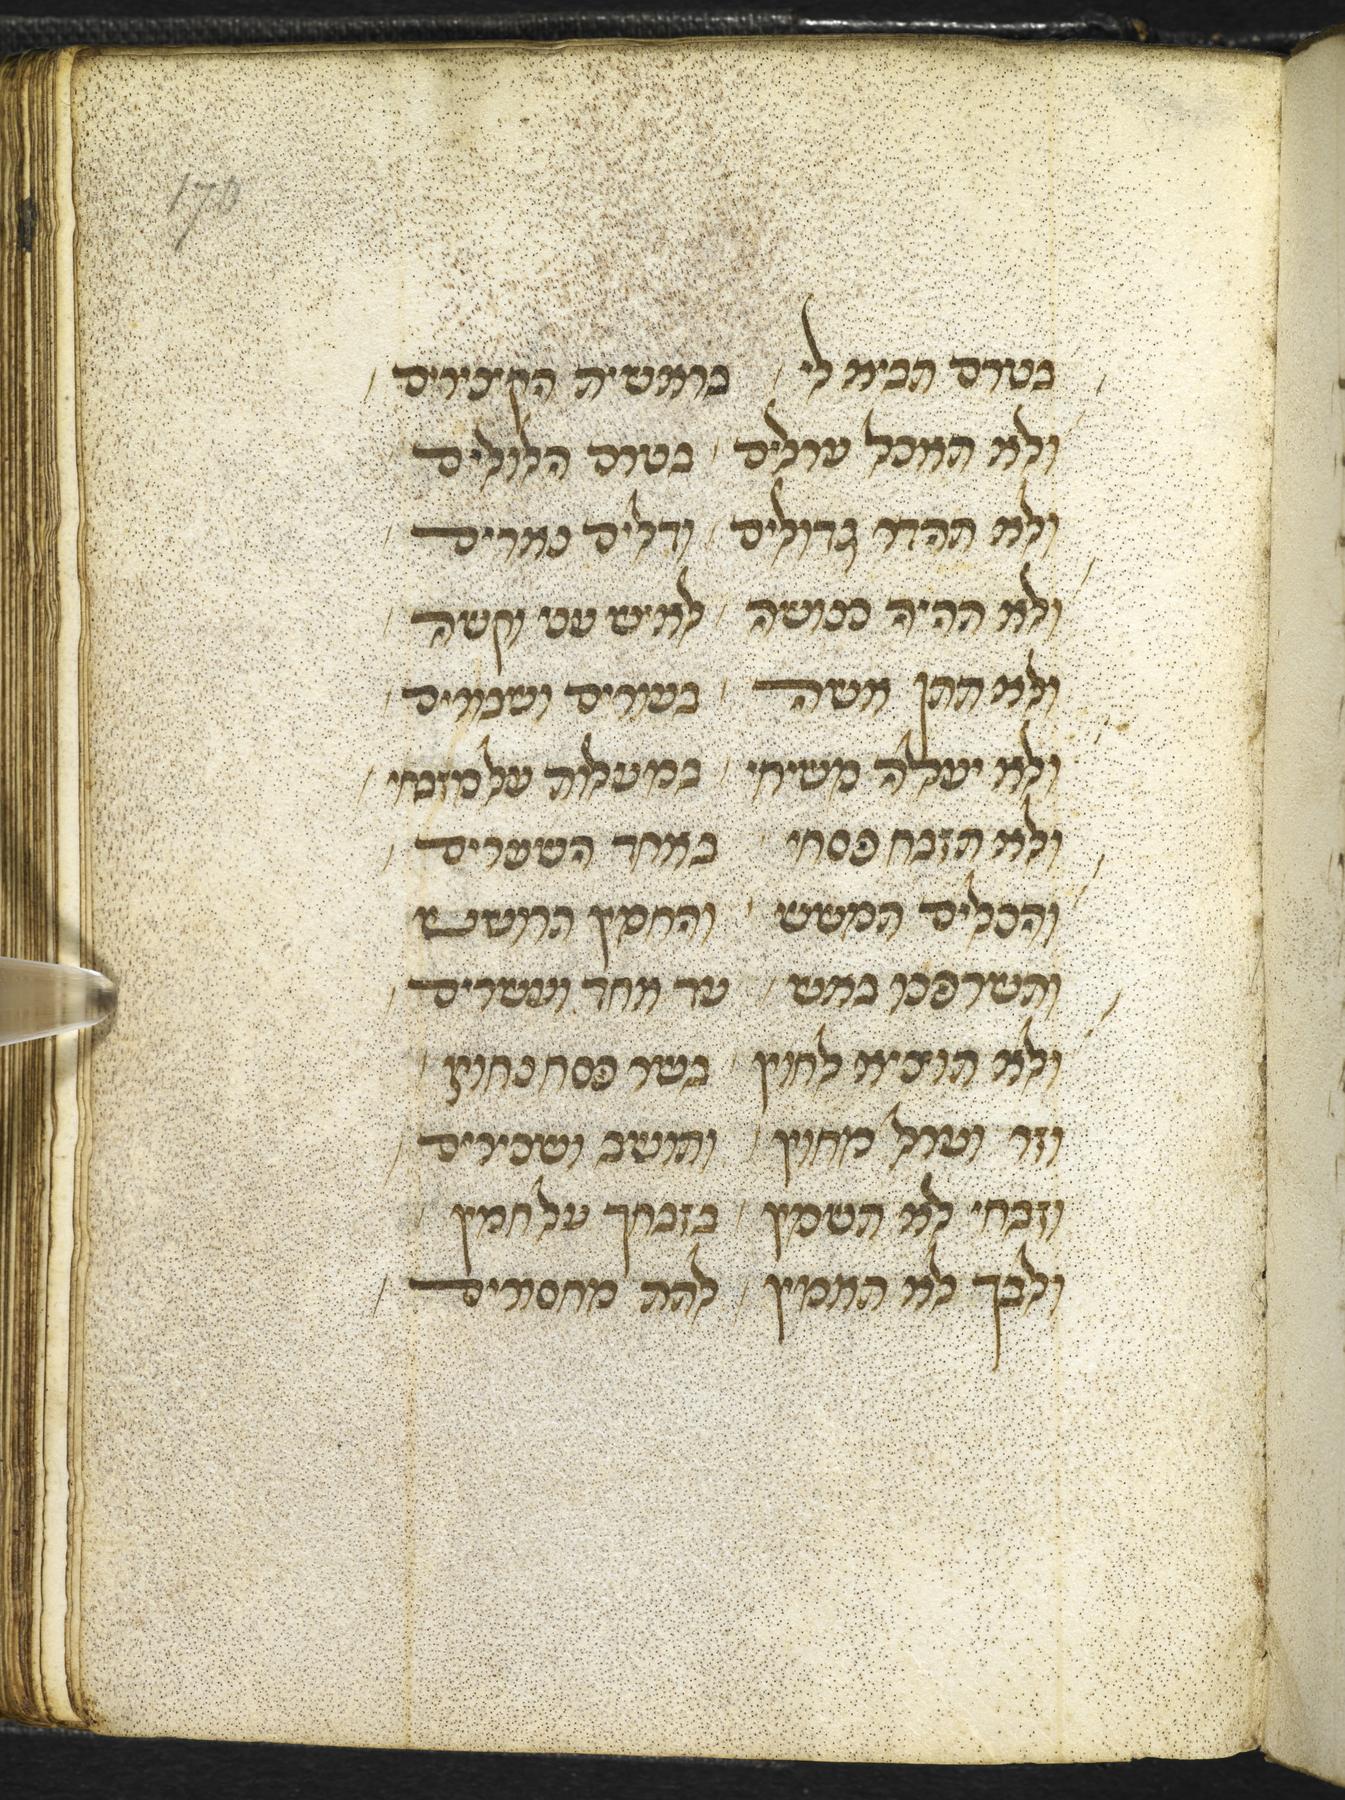 170
בטרם תביא לי / בראשית הבכורים /
ולא תאכל ערלים / בטרם הלולים
ולא תהדר גדולים / ודלים
ולא תהיה כנושה / לאיש עני וקשה /
ולא תתן אשה / בעורים ושבורים /
ולא יעלה משיחי / במעלות על מזבחי /
ולא תזבח פסחי / באחד השערים /
והכלים המשש / והחמץ
ותשרפנו באש / עד אחד ועשרים /
ולא תוציא לחוץ / בשר פסח נחוץ /
וזר וערל מחוץ / ותושב ושכירים /
וזבחי לא תשמיץ / בזבחך על חמץ /
ולבך לא תאמיץ / לתת מחסורים /